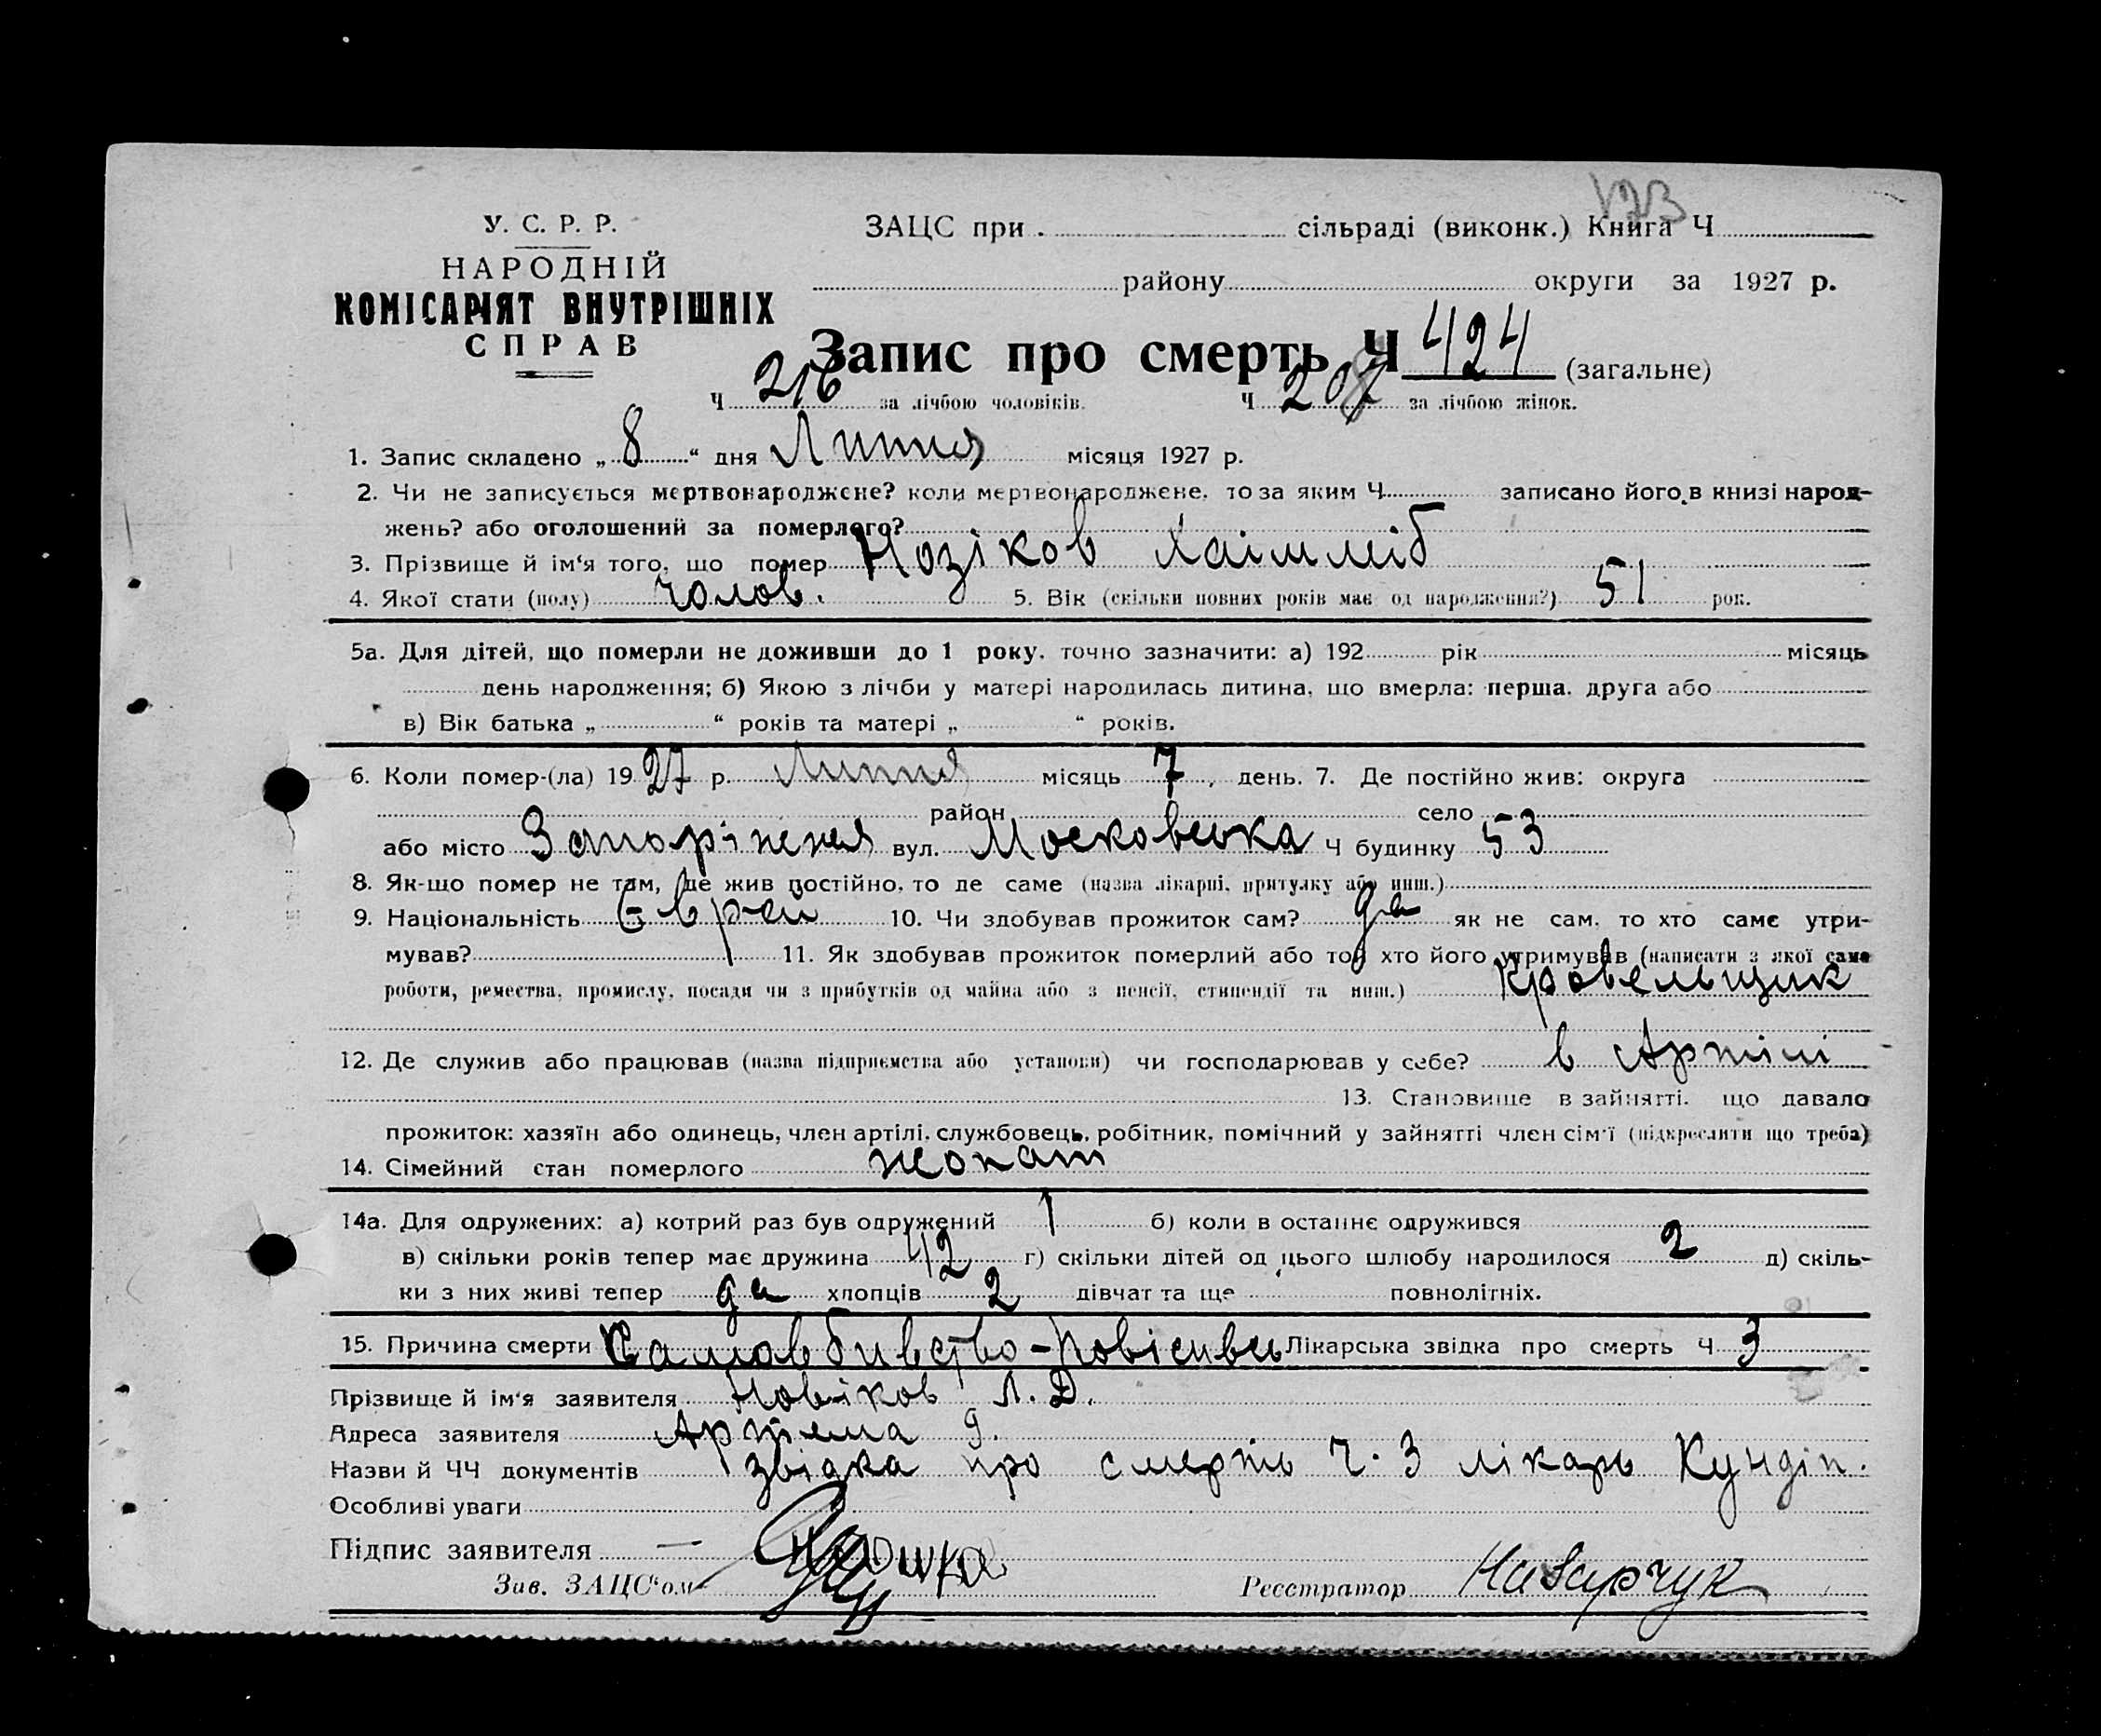 173
У. С. Р. Р.
ЗАЦС при сільраді (виконк.) Книга Ч
НАРОДНІЙ
району округи за 1927 р.
КОМІСАРІЯТ ВНУТРІШНІХ
СПРАВ
Запис про смерть Ч 424 (загальне)
Ч 216 за лічбою чоловіків. Ч 208 за лічбою жінок.
1. Запис складено „8“ дня Липня місяця 1927 р.
2. Чи не записується мертвонароджене? коли мертвонароджене, то за яким Ч записано його в книзі народ-
жень? або оголошений за померлого?
3. Прізвище й ім'я того, що помер Нозіков Хаімлеіб
4. Якої стати (полу) чолов. 5. Вік (скільки повних років має од народження?) 51 рок.
5а. Для дітей, що померли не доживши до 1 року, точно зазначити: а) 192 рік місяць
день народження; б) Якою з лічби у матері народилась дитина, що вмерла: перша, друга або
в) Вік батька „ “ років та матері „ “ років.
6. Коли помер-(ла) 1927 р. Липня місяць 7, день. 7. Де постійно жив: округа
район село
або місто Запоріжжя вул. Московська Ч будинку 53
8. Як-що помер не там, де жив постійно, то де саме (назва лікарні, притулку або инш.)
9. Національність Єврей 10. Чи здобував прожиток сам? да як не сам, то хто саме утри-
мував? 11. Як здобував прожиток померлий або той хто його утримував (написати з якої саме
роботи, ремества, промислу, посади чи з прибутків од майна або з пенсії, стипендії та инш.) Кровельщик
12. Де служив або працював (назва підприємства або установи) чи господарював у себе? в Артілі
13. Становище в зайнятті, що давало
прожиток: хазяїн або одинець, член артілі, службовець, робітник, помічний у зайнятті член сім'ї (підкреслити що треба)
14. Сімейний стан померлого жонат
14а. Для одружених: а) котрий раз був одружений 1 б) коли в останнє одружився
в) скільки років тепер має дружина 42 г) скільки дітей од цього шлюбу народилося 2 д) скіль-
ки з них живі тепер да хлопців 2 дівчат та ще повнолітніх.
15. Причина смерти Самовбивство-повісивсь Лікарська звідка про смерть Ч 3
Прізвище й ім'я заявителя Новіков Л. Д.
Адреса заявителя Артема 9.
Назви й ЧЧ документів звідка про смерть Ч. 3 лікарь Кундін.
Особливі уваги
Підпис заявителя —
Зав. ЗАЦС'ом Реєстратор Назарчук